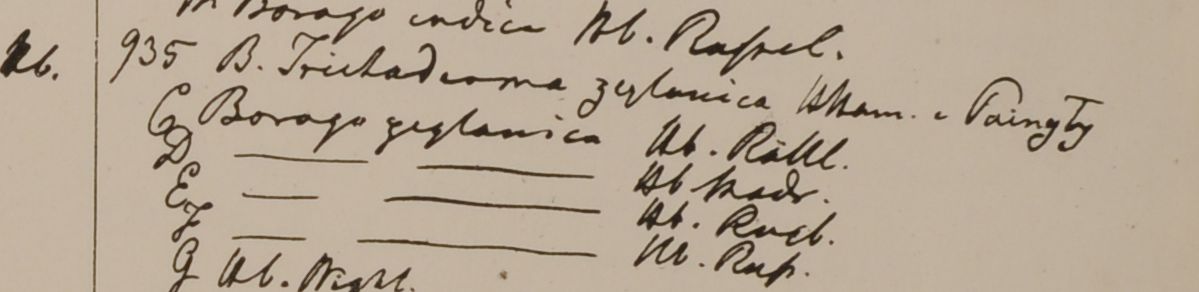 Borago indica Hb. Russel.
Hb. 935 B. Trichaderma zeylanica HHam. e Paingty
C Borago zeylanica Hb. Rottl.
D — — Hb Madr.
E — — Hb. Roxb.
F — — Hb. Rup.
G Hb. Wight.